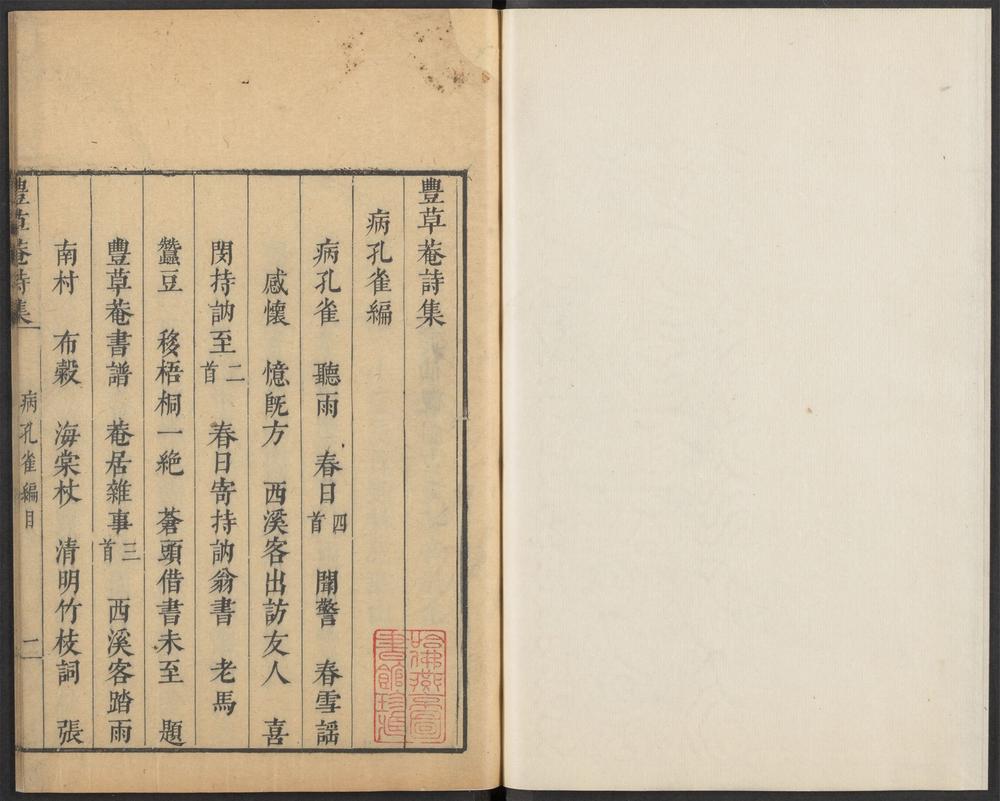 豊草菴詩集
病孔雀編
病孔雀 聽雨 春日四首 聞警 春雪謡
感懷 憶旣方 西溪客出訪友人 喜
閔持訥至二首 春日寄持訥翁書 老馬
蠶豆 移梧桐一絶 蒼頭借書未至 題
豊草菴書譜 菴居雜事三首 西溪客踏雨
南村 布穀 海棠杖 清明竹枝詞 張
豊草菴詩集 病孔雀編目 二
哈佛燕京圖書館珍藏